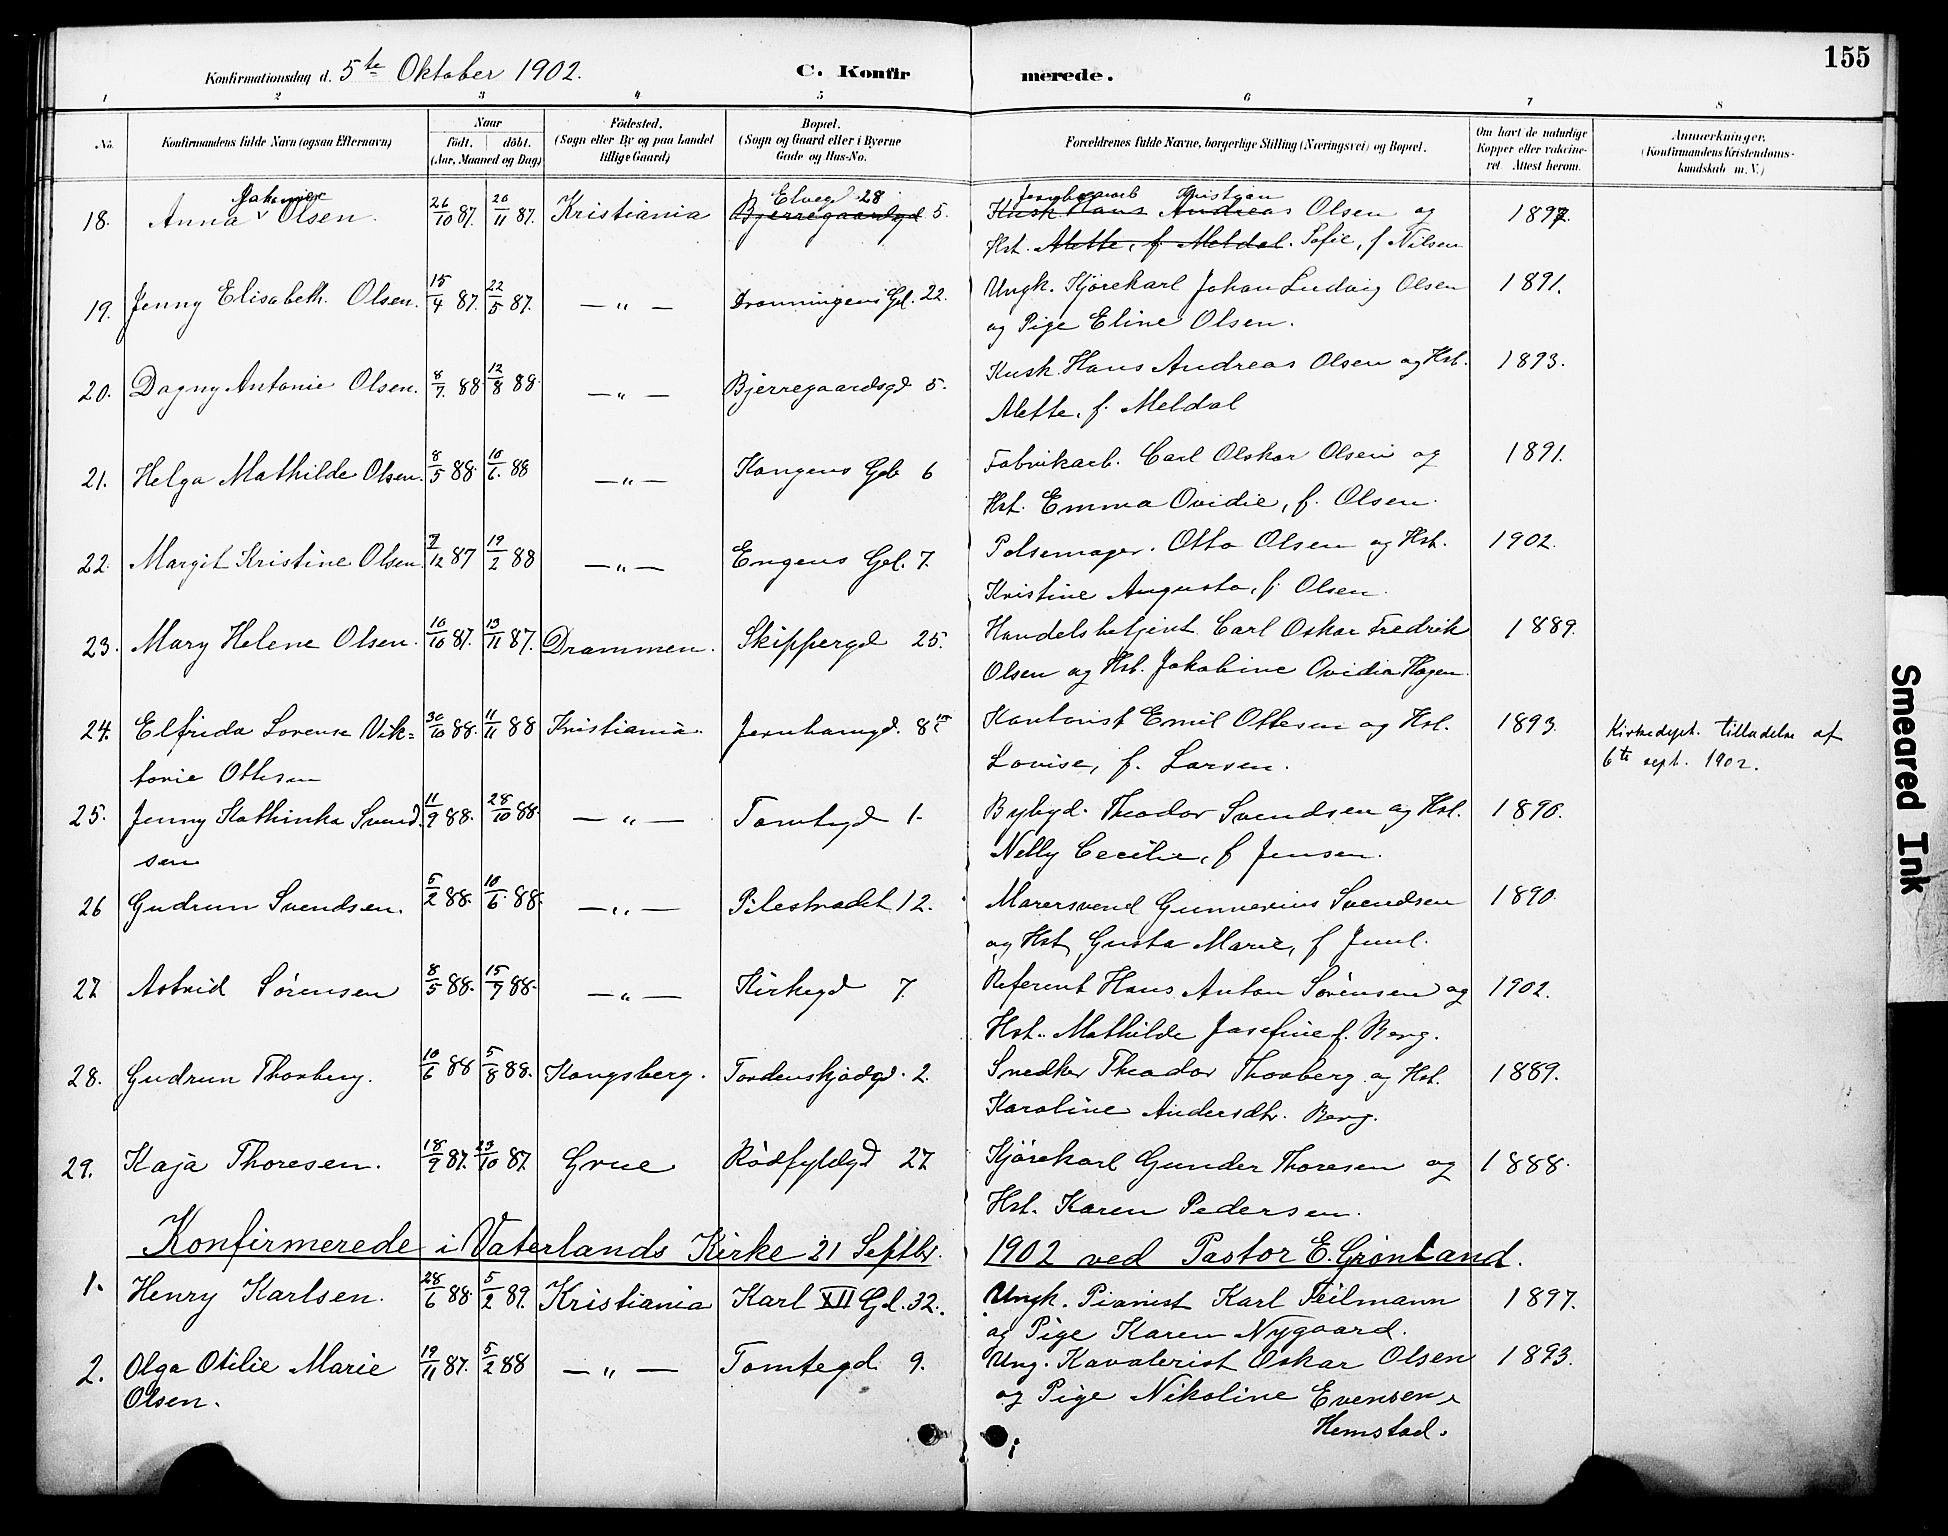 155
Konfirmationsdag d. 5te Oktober 1902. C. Konfirmerede.
1 2 3 4 5 6 7 8
No. Konfirmandens fulde Navn (ogsaa Efternavn) Naar födt. döbt. (Aar, Maaned og Dag) Födested. (Sogn eller By og paa Landet tillige Gaard) Bopæl. (Sogn og Gaard eller i Byerne Gade og Hus-No. Forældrenes fulde Navne, borgerlige Stilling (Næringsvei) og Bopæl. Om havt de naturlige Kopper eller vakcineret Attest herom. Anmærkninger. (Konfirmandens Kristendomskundskab m.V.)
Elvegd 28 Kristian
18. Anna Olsen. 26/10 87. 20/11 87. Kristiania Bjerregaardsgd 5. Kusk Hans Andreas Olsen og 1897.
Hst. Alette, f. Meldal. Sofie, f Nilsen
19. Jenny Elisabeth. Olsen. 15/4 87. 22/5 87. — „ — Dronningens Gd. 22. Ungk. Kjørekarl Johan Ludvig Olsen 1891.
og Pige Eline Olsen.
20. Dagny Antonie Olsen. 8/7 88 12/8 88. — „ — Bjerregaardsgd 5. Kusk Hans Andreas Olsen og Hst. 1893.
Alette, f. Meldal
21. Helga Mathilde Olsen. 8/5 88 10/6 88 — „ — Kongens Gd 6 Fabrikarb. Carl Olskar Olsen og 1891.
Hst. Emma Ovidie, f. Olsen.
22. Margit Kristine Olsen 7/12 87 19/2 88 — „ — Engens Gd. 7. Pølsemager. Otto Olsen og Hst. 1902.
Kristine Augusta, f. Olsen.
23. Mary Helene Olsen. 10/10 87. 13/11 87. Drammen. Skippergd 25. Handelsbetjent Carl Oskar Fredrik 1889.
Olsen og Hst. Jakobine Ovidia Hagen.
24. Elfrida Lorense Vik= 30/10 88. 11/11 88 Kristiania. Jernbanegd. 8 Kontorist Emil Ottesen og Hst. 1893. Kirkedept. tilladelse af
torie Ottesen Lovise, f. Larsen. 6te sept. 1902.
25. Jenny Kathinka Svend 11/9 88. 28/10 88. — „ — Tomtegd 1. Bybyd. Theodor Svendsen og Hst. 1890.
sen Nelly Cecilie, f Jensen.
26 Gudrun Svendsen. 5/2 88. 10/6 88. — „ — Pilestrædet 12. Murersvend Gunnerius Svendsen 1890.
og Hst. Gusta Marie, f Juul.
27 Astrid Sørensen 8/5 88. 15/7 88. — „ — Kirkegd 7. Referent Hans Anton Sørensen og 1902.
Hst. Mathilde Josefine f. Berg.
28. Gudrun Thorberg. 10/6 88 5/8 88. Kongsberg. Tordenskjoldsgd. 2. Snedker Theodor Thorberg og Hst. 1889.
Karoline Andersdtr. Berg.
29. Kaja Thoresen. 18/9 87. 23/10 87. Grue Rødfyldgd 27. Kjørekarl Gunder Thoresen og 1888.
Hst. Karen Pedersen.
Konfirmerede i Vaterlands Kirke 21 Septbr. 1902 ved Pastor E. Grønland.
1. Henry Karlsen. 28/6 88. 5/2 89. Kristiania Karl XII Gd. 32. Ungk. Pianist Karl Teilmann 1897.
og Pige Karen Nygaard.
2. Olga Otilie Marie 19/11 87. 5/2 88 — „ — Tomtegd. 9. Ung. Kavalerist Oskar Olsen 1893.
Olsen. og Pige Nikoline Evensen,
Hemstad.
Smeared Ink